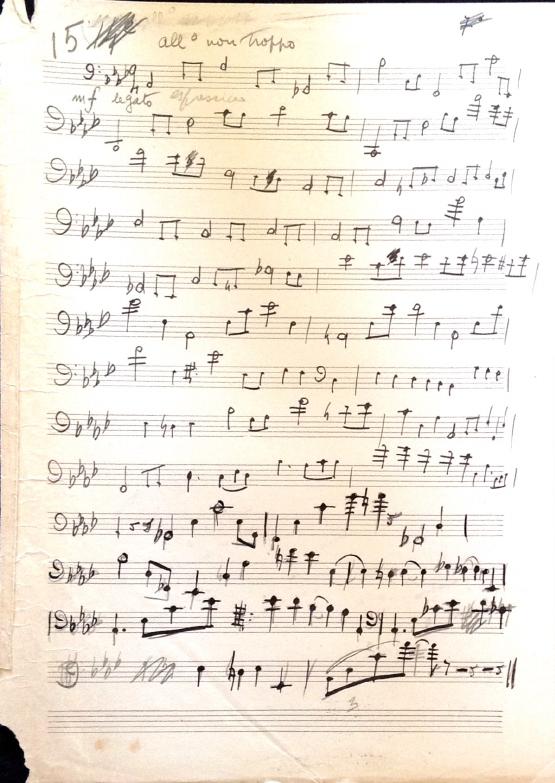 15 all° non Troppo
mf legato espressivo
3